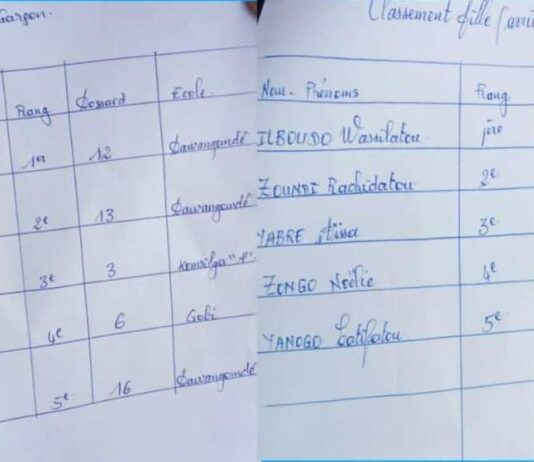 Garçon.
Rang Dossard Ecole
1er 12 Sawangondé
2e 13 Sawangondé
3e 3 Komsilga "A"
4e 6 Gobi
5e 16 Sawangondé
Classement fille
Nom - Prénoms Rang
ILBOUDO Wassilatou 1ère
ZOUNDI Rachidatou 2e
YABRE Aïssa 3e
ZONGO Noëlie 4e
YANOGO Latifatou 5e